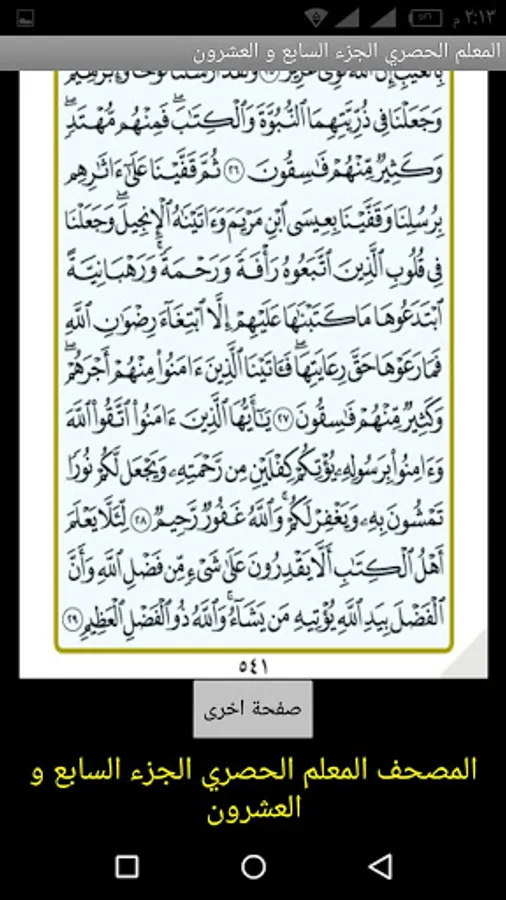 ٢:١٣ م
٥٦
المعلم الحصري الجزء السابع و العشرون
بِٱلْغَيْبِ إِنَّ ٱللَّهَ قَوِىٌّ عَزِيزٌ ٢٥ وَلَقَدْ أَرْسَلْنَا نُوحًا وَإِبْرَٰهِيمَ
وَجَعَلْنَا فِى ذُرِّيَّتِهِمَا ٱلنُّبُوَّةَ وَٱلْكِتَٰبَ ۖ فَمِنْهُم مُّهْتَدٍ ۖ
وَكَثِيرٌ مِّنْهُمْ فَٰسِقُونَ ٢٦ ثُمَّ قَفَّيْنَا عَلَىٰٓ ءَاثَٰرِهِم
بِرُسُلِنَا وَقَفَّيْنَا بِعِيسَى ٱبْنِ مَرْيَمَ وَءَاتَيْنَٰهُ ٱلْإِنجِيلَ ۖ وَجَعَلْنَا
فِى قُلُوبِ ٱلَّذِينَ ٱتَّبَعُوهُ رَأْفَةً وَرَحْمَةً ۚ وَرَهْبَانِيَّةً
ٱبْتَدَعُوهَا مَا كَتَبْنَٰهَا عَلَيْهِمْ إِلَّا ٱبْتِغَآءَ رِضْوَٰنِ ٱللَّهِ
فَمَا رَعَوْهَا حَقَّ رِعَايَتِهَا ۖ فَـَٔاتَيْنَا ٱلَّذِينَ ءَامَنُوا۟ مِنْهُمْ أَجْرَهُمْ ۖ
وَكَثِيرٌ مِّنْهُمْ فَٰسِقُونَ ٢٧ يَٰٓأَيُّهَا ٱلَّذِينَ ءَامَنُوا۟ ٱتَّقُوا۟ ٱللَّهَ
وَءَامِنُوا۟ بِرَسُولِهِۦ يُؤْتِكُمْ كِفْلَيْنِ مِن رَّحْمَتِهِۦ وَيَجْعَل لَّكُمْ نُورًا
تَمْشُونَ بِهِۦ وَيَغْفِرْ لَكُمْ ۚ وَٱللَّهُ غَفُورٌ رَّحِيمٌ ٢٨ لِّئَلَّا يَعْلَمَ
أَهْلُ ٱلْكِتَٰبِ أَلَّا يَقْدِرُونَ عَلَىٰ شَىْءٍ مِّن فَضْلِ ٱللَّهِ وَأَنَّ
ٱلْفَضْلَ بِيَدِ ٱللَّهِ يُؤْتِيهِ مَن يَشَآءُ ۚ وَٱللَّهُ ذُو ٱلْفَضْلِ ٱلْعَظِيمِ ٢٩
٥٤١
صفحة اخرى
المصحف المعلم الحصري الجزء السابع و
العشرون